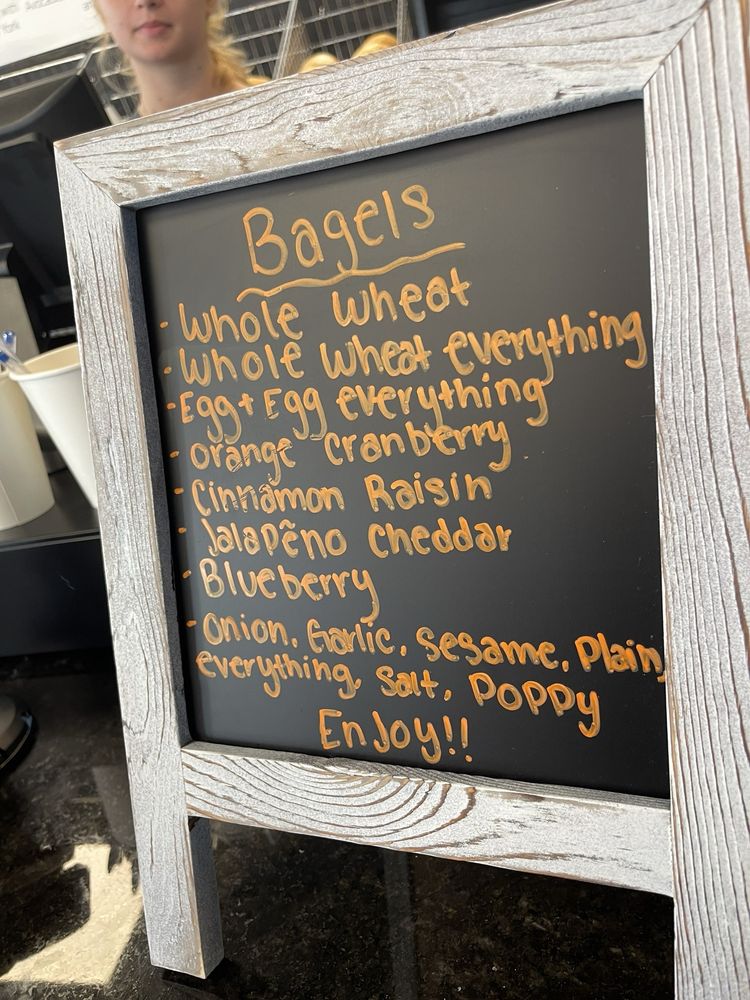 York
Bagels
- Whole Wheat
- Whole Wheat everything
- Egg + Egg everything
- orange Cranberry
- Cinnamon Raisin
- Jalapẽno Cheddar
- Blueberry
- Onion, Garlic, Sesame, Plain,
everything, Salt, Poppy
Enjoy!!